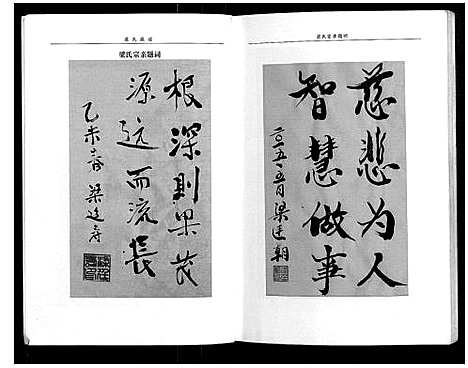 梁氏宗亲题词
慈悲为人
智慧做事
二〇一五·五月梁廷朝
梁氏族谱
梁氏宗亲题词
根深则果茂
源远而流长
乙未春 梁廷寿